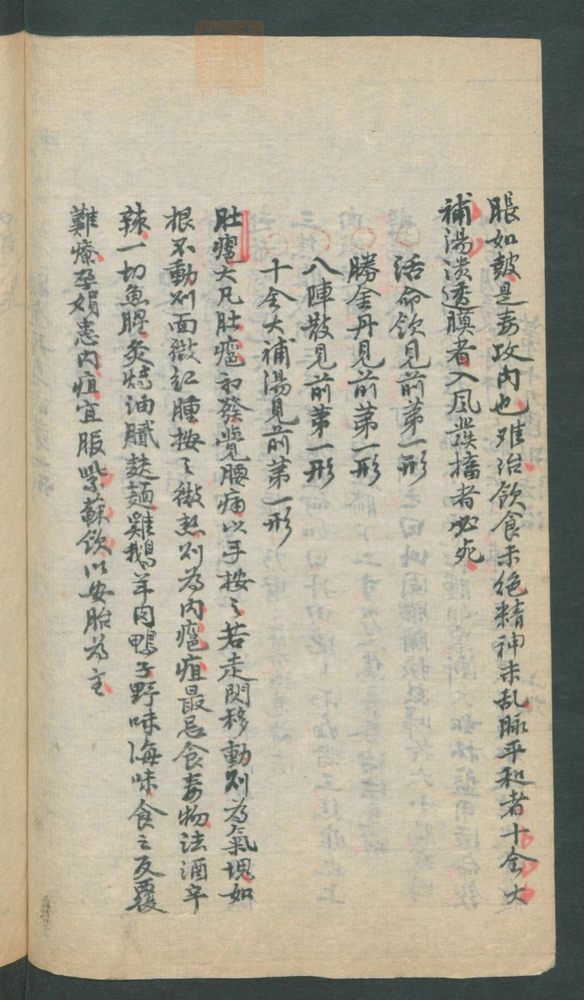 脹如皷是毒攻内也难治飲食未绝精神未乱脉平和者十全大
補湯潰透膜者入風發搐者必死
活命飲見前第一形
勝金丹見前第一形
八陣散見前第一形
十全大補湯見前第一形
肚癰大凡肚癰初發觉腰痛以手按之若走閃移動则為氣塊如
根不動则面微紅腫按之微热则為内癰疽最忌食毒物法酒辛
辣一切魚腥炙煿油膩麸麵雞鵝羊肉鴨子野味海味食之反覆
難療孕婦患内疽宜服紫蘇飲以安胎為主